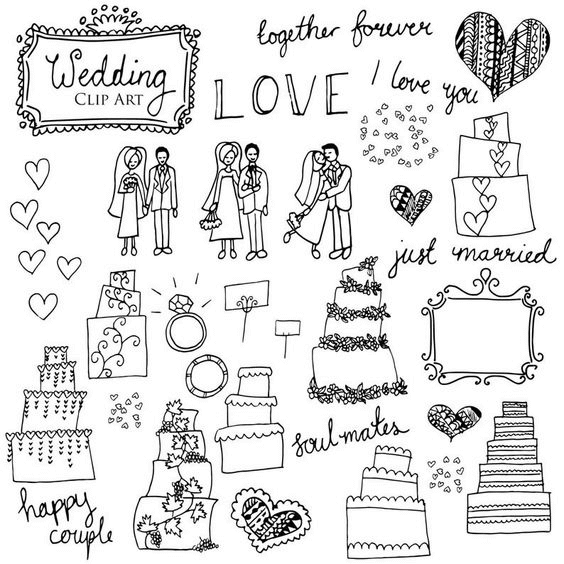 Wedding
CLIP ART
together forever
LOVE
I love you
just married
soul mates
happy
couple